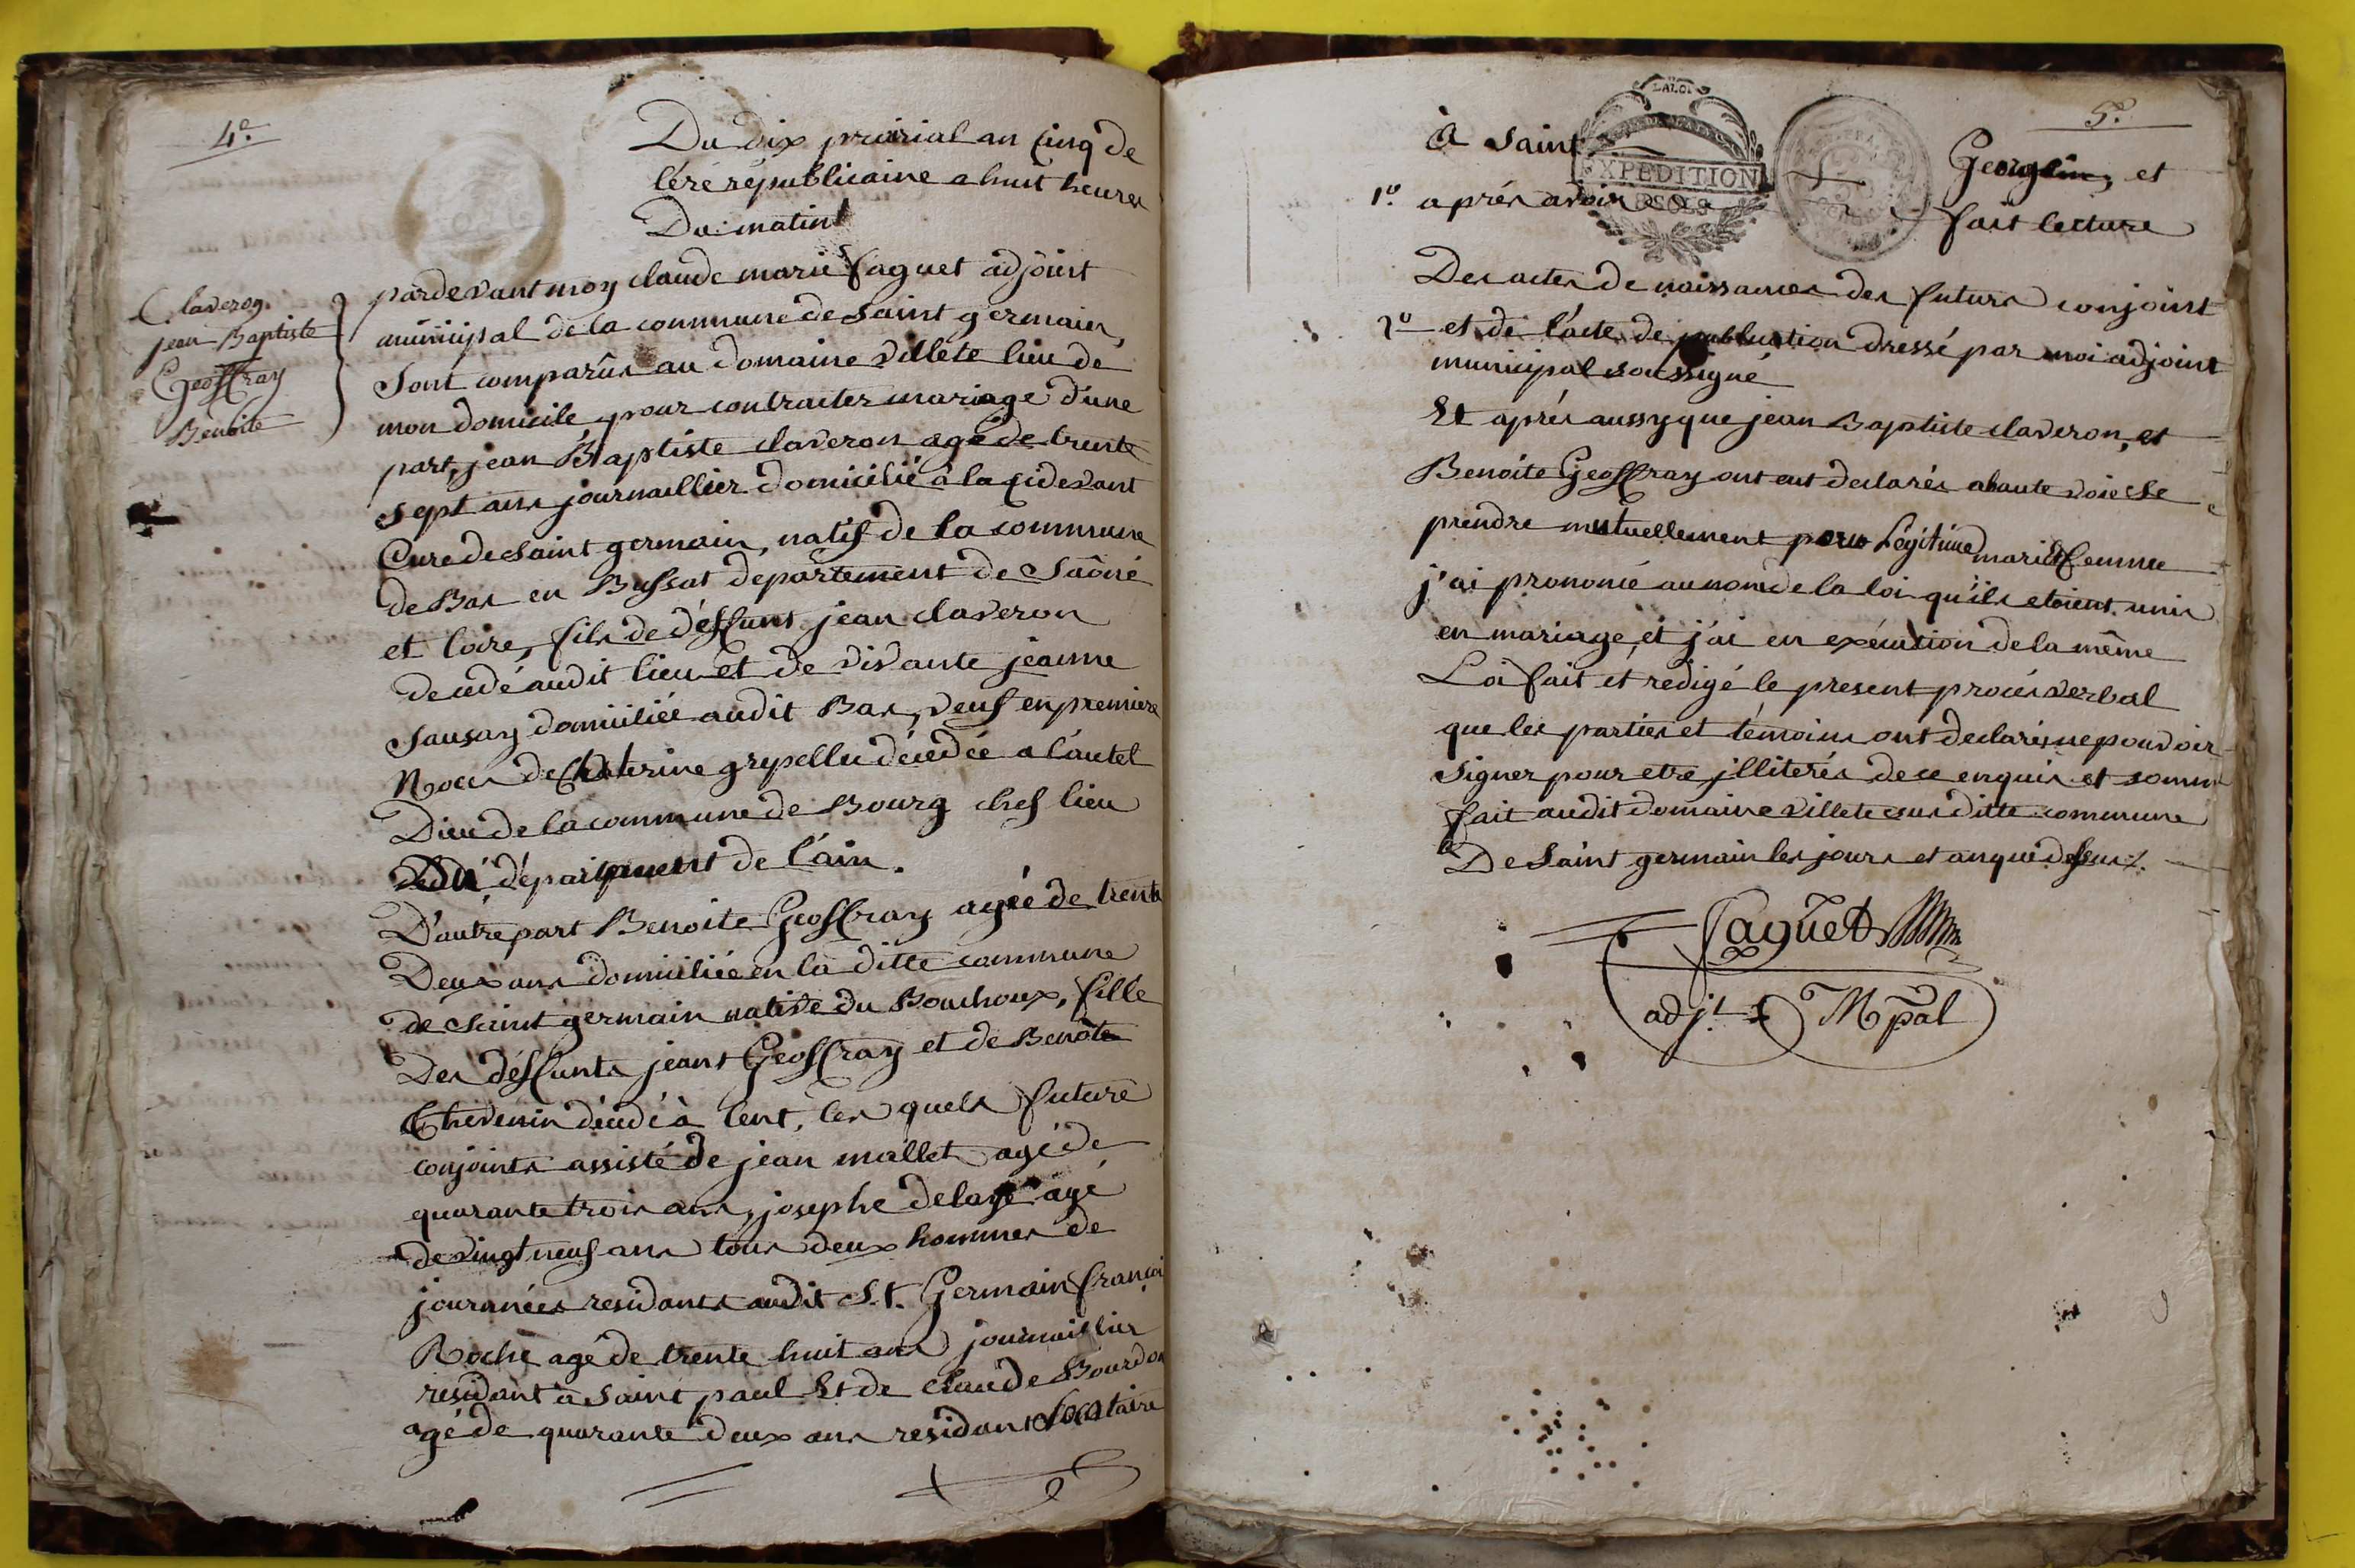 4e.
Du dix prairial an Cinq de
l'ére républicaine a huit heures
Du matin
Claveron
jean Baptiste
Geoffray
Benoite
pardevant moy claude marie faguet adjoint
municipal de la commune de saint germain
sont comparûs au domaine villete lieu de
mon domicile pour contracter mariage d'une
part, jean Baptiste claveron agé de trente
sept ans journaillier domicilié à la cidevant
Cure de saint germain, natif de la commune
de Bas en département de Sâône
et loire, fils de déffunt jean claveron
decedé audit lieu et de vivante jeanne
sausay domiciliée audit Bas, veuf en premiere
Noces de Catherine grypellee décedée a l'autel
Dieu de la commune de Bourg chef lieu
du département de l'ain.
D'autre part Benoite Geoffray agée de trente
Deux ans domiciliée en la ditte commune
de saint germain native du Bouchoux, fille
Des déffunts jeant Geoffray et de Benoîte
thevenin décedé à lent, les quels future
conjoints assisté de jean mallet agé de
quarante trois ans, josephe delaye agé
de vingt neuf ans tous deux hommes de
journées residants audit S.t. Germain françoi
Roche agé de trente huit ans journaillier
residant à Saint paul Et de claude Bourdon
agé de quarante deux ans residant locataire
5e.
à saint Georgein, et
LA LOI
EXPEDITION
SOLS
1o. aprés avoir fait lecture
Des actes de naissances des futurs conjoint
2o et de l'acte de publication dressé par moi adjoint
municipal soussigné
Et aprés aussy que jean Baptiste claveron, et
Benoite Geoffray ont eut declarés ahaute voie se
prendre mutuellement pour Légitime mari et femme
j'ai prononcé au nom de la loi qu'ils etoient unis
en mariage, et j'ai en exécution de la même
Loi fait et redigé le present procés verbal
que les parties et témoins ont declarés ne pouvoir
signer pour etre jlliterés de ce enquis et somm
fait audit domaine villete sus ditte commune
De Saint germain les jours et an que dessus.
faguet
adjt. Mpal